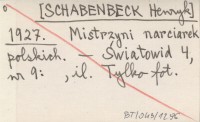 [SCHABENBECK Henryk]
1927. Mistrzyni narciarek
polskich. – Światowid 4,
nr 9: , il. Tylko fot.